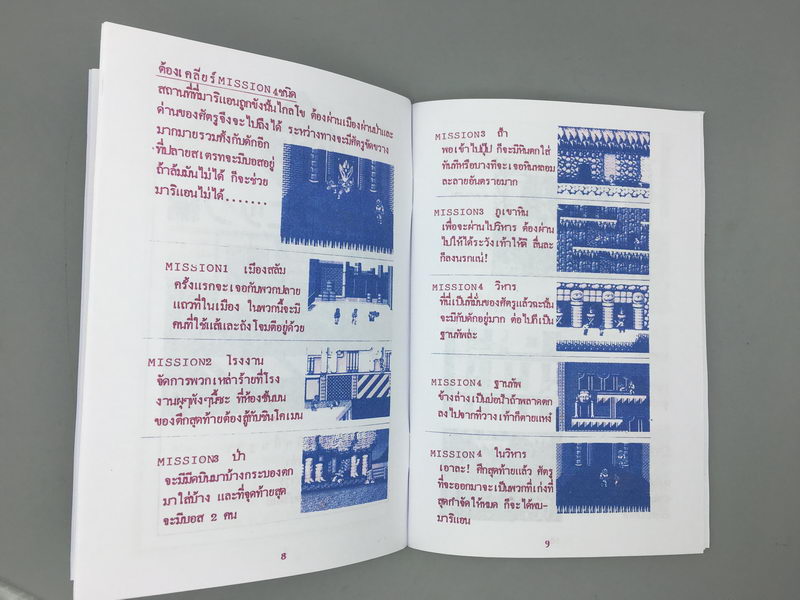 ต้องเคลียร์ MISSION 4ชนิด
สถานที่ที่มาริแอนถูกขังนั้นไกลโข ต้องผ่านเมืองผ่านป่าและ
ด่านของศัตรูจึงจะไปถึงได้ ระหว่างทางจะมีศัตรูขัดขวาง
มากมายรวมทั้งกับดักอีก
ที่ปลายสเตรทจะมีบอสอยู่
ถ้าล้มมันไม่ได้ ก็จะช่วย
มาริแอนไม่ได้.......
MISSION1 เมืองสลัม
ครั้งแรกจะเจอกับพวกปลาย
แถวที่ในเมือง ในพวกนี้จะมี
คนที่ใช้แส้และถังโจมตีอยู่ด้วย
MISSION2 โรงงาน
จัดการพวกเหล่าร้ายที่โรง
งานผุๆพังๆนี้ซะ ที่ห้องชั้นบน
ของตึกสุดท้ายต้องสู้กับชินโคเมน
MISSION3 ป่า
จะมีมีดบินมาบ้างกระบองตก
มาใส่บ้าง และที่จุดท้ายสุด
จะมีบอส 2 คน
8
MISSION3 ถ้ำ
พอเข้าไปปุ๊ป ก็จะมีหินตกใส่
ทันทีหรือบางทีจะเจอหินหลอม
ละลายอันตรายมาก
MISSION3 ภูเขาหิน
เพื่อจะผ่านไปวิหาร ต้องผ่าน
ไปให้ได้ระวังเท้าให้ดี ลื่นละ
ก็ลงนรกแน่!
MISSION4 วิหาร
ที่นี่เป็นที่มั่นของศัตรูแล้วฉะนั้น
จะมีกับดักอยู่มาก ต่อไปก็เป็น
ฐานทัพล่ะ
MISSION4 ฐานทัพ
ข้างล่างเป็นบ่อน้ำถ้าพลาดตก
ลงไปจากที่วางเท้าก็ตายแหง๋
MISSION4 ในวิหาร
เอาละ! ศึกสุดท้ายแล้ว ศัตรู
ที่จะออกมาจะเป็นพวกที่เก่งที่
สุดกำจัดให้หมด ก็จะได้พบ-
มาริแอน
9